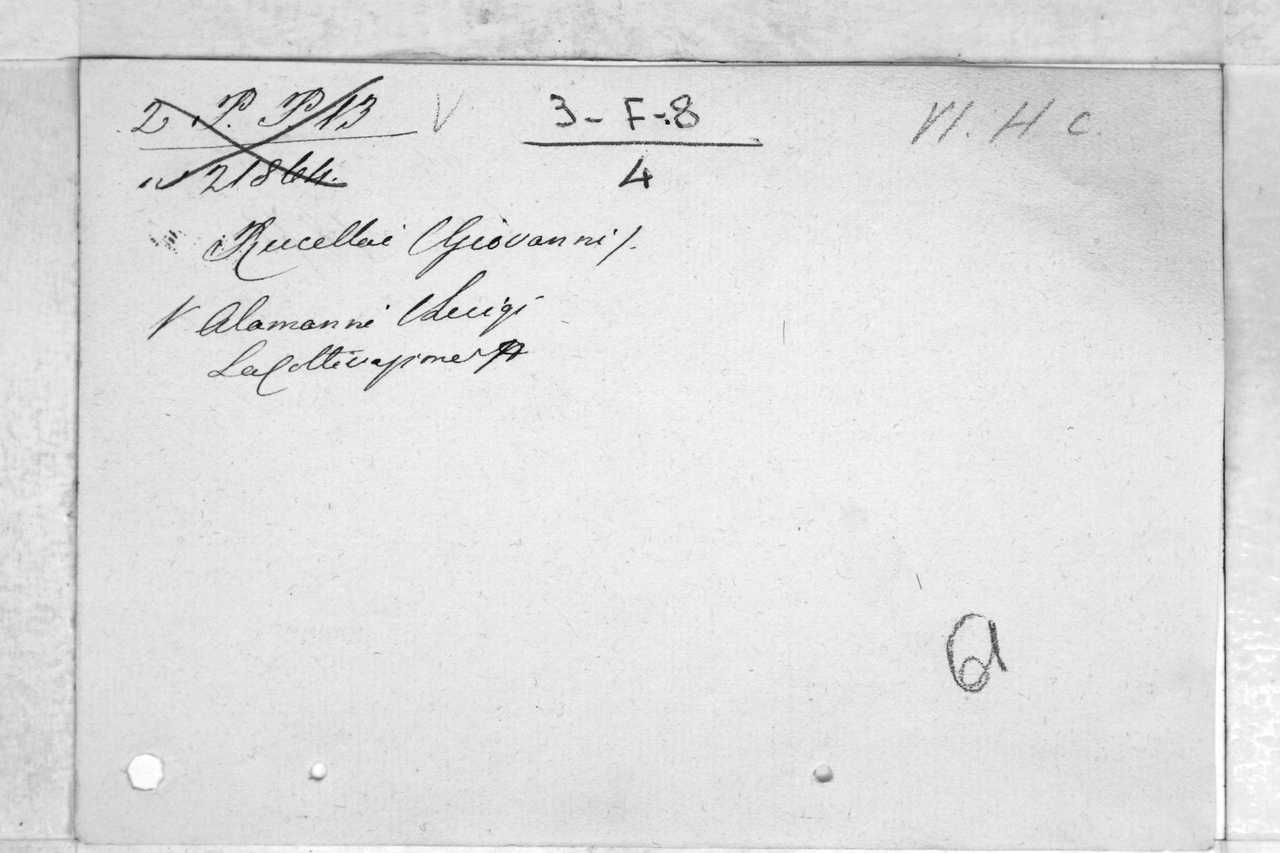 2. P. P. 13 V 3-F-8 VI. H c.
21864. 4
Rucellai (Giovanni).
V Alamanni (Luigi
La Coltivazione